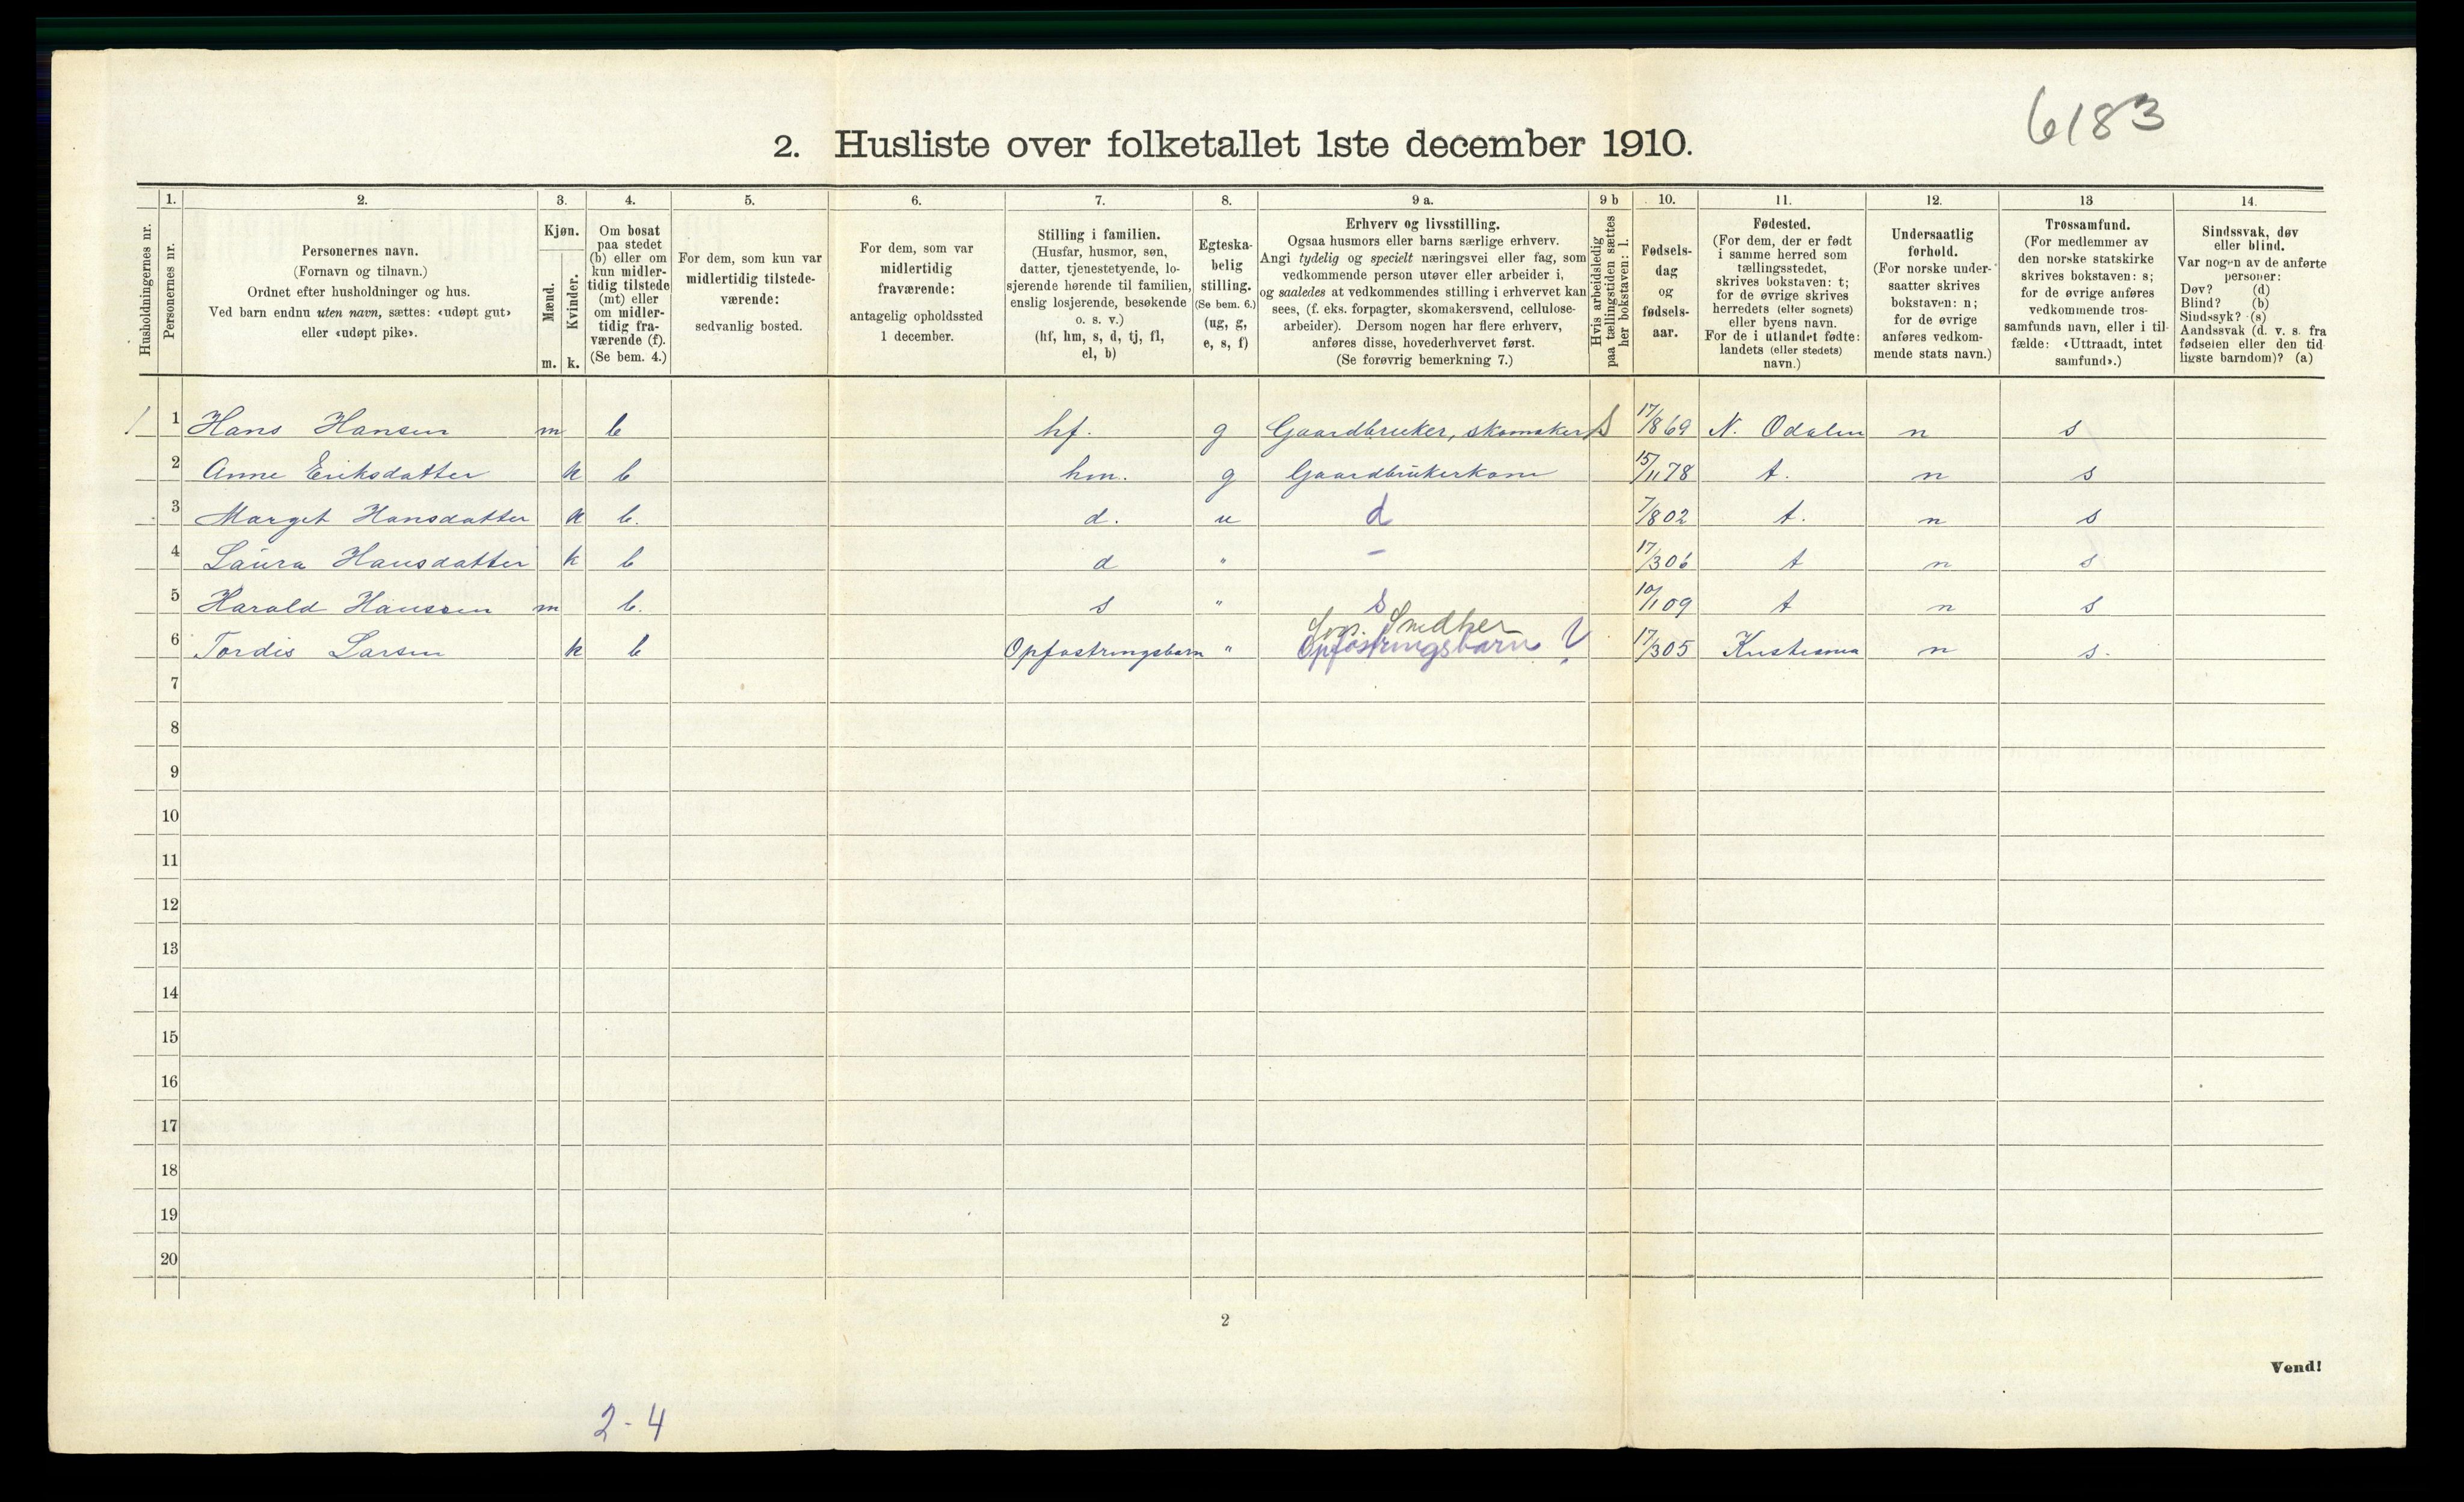 6183
2. Husliste over folketallet 1ste december 1910.
Husholdningernes nr.
1.
Personernes nr.
2.
Personernes navn.
(Fornavn og tilnavn.)
Ordnet efter husholdninger og hus.
Ved barn endnu uten navn, sættes: «udøpt gut»
eller «udøpt pike».
3.
Kjøn.
Mænd.
Kvinder.
m. k.
4.
Om bosat
paa stedet
(b) eller om
kun midler-
tidig tilstede
(mt) eller
om midler-
tidig fra-
værende (f).
(Se bem. 4.)
5.
For dem, som kun var
midlertidig tilstede-
værende:
sedvanlig bosted.
6.
For dem, som var
midlertidig
fraværende:
antagelig opholdssted
1 december.
7.
Stilling i familien.
(Husfar, husmor, søn,
datter, tjenestetyende, lo-
sjerende hørende til familien,
enslig losjerende, besøkende
o. s. v.)
(hf, hm, s, d, tj, fl,
el, b)
8.
Egteska-
belig
stilling.
(Se bem. 6.)
(ug, g,
e, s, f)
9 a.
Erhverv og livsstilling.
Ogsaa husmors eller barns særlige erhverv.
Angi tydelig og specielt næringsvei eller fag, som
vedkommende person utøver eller arbeider i,
og saaledes at vedkommendes stilling i erhvervet kan
sees, (f. eks. forpagter, skomakersvend, cellulose-
arbeider). Dersom nogen har flere erhverv,
anføres disse, hovederhvervet først.
(Se forøvrig bemerkning 7.)
9 b
Hvis arbeidsledig
paa tællingstiden sættes
her bokstaven: l.
10.
Fødsels-
dag
og
fødsels-
aar.
11.
Fødested.
(For dem, der er født
i samme herred som
tællingsstedet,
skrives bokstaven: t;
for de øvrige skrives
herredets (eller sognets)
eller byens navn.
For de i utlandet fødte:
landets (eller stedets)
navn.)
12.
Undersaatlig
forhold.
(For norske under-
saatter skrives
bokstaven: n;
for de øvrige
anføres vedkom-
mende stats navn.)
13
Trossamfund.
(For medlemmer av
den norske statskirke
skrives bokstaven: s;
for de øvrige anføres
vedkommende tros-
samfunds navn, eller i til-
fælde: «Uttraadt, intet
samfund».)
14.
Sindssvak, døv
eller blind.
Var nogen av de anførte
personer:
Døv? (d)
Blind? (b)
Sindssyk? (s)
Aandssvak (d. v. s. fra
fødselen eller den tid-
ligste barndom)? (a)
1 Hans Hansen m b hf. g Gaardbruker, skomaker S 17/8 69 N. Odalen n s
2 Anne Eriksdatter k b hm. g Gaardbrukerkone 15/11 78 t. n s
3 Marget Hansdatter k b. d. u d 7/8 02 t. n s
4 Laura Hansdatter k b d " – 17/3 06 t n s
5 Harald Hanssen m b. s " s 10/1 09 t n s
Snedker
6 Tordis Larsen k b Opfostringsbarn " Opfostringsbarn 17/3 05 Kristiania n s.
7
8
9
10
11
12
13
14
15
16
17
18
19
20
2
Vend!
2-4